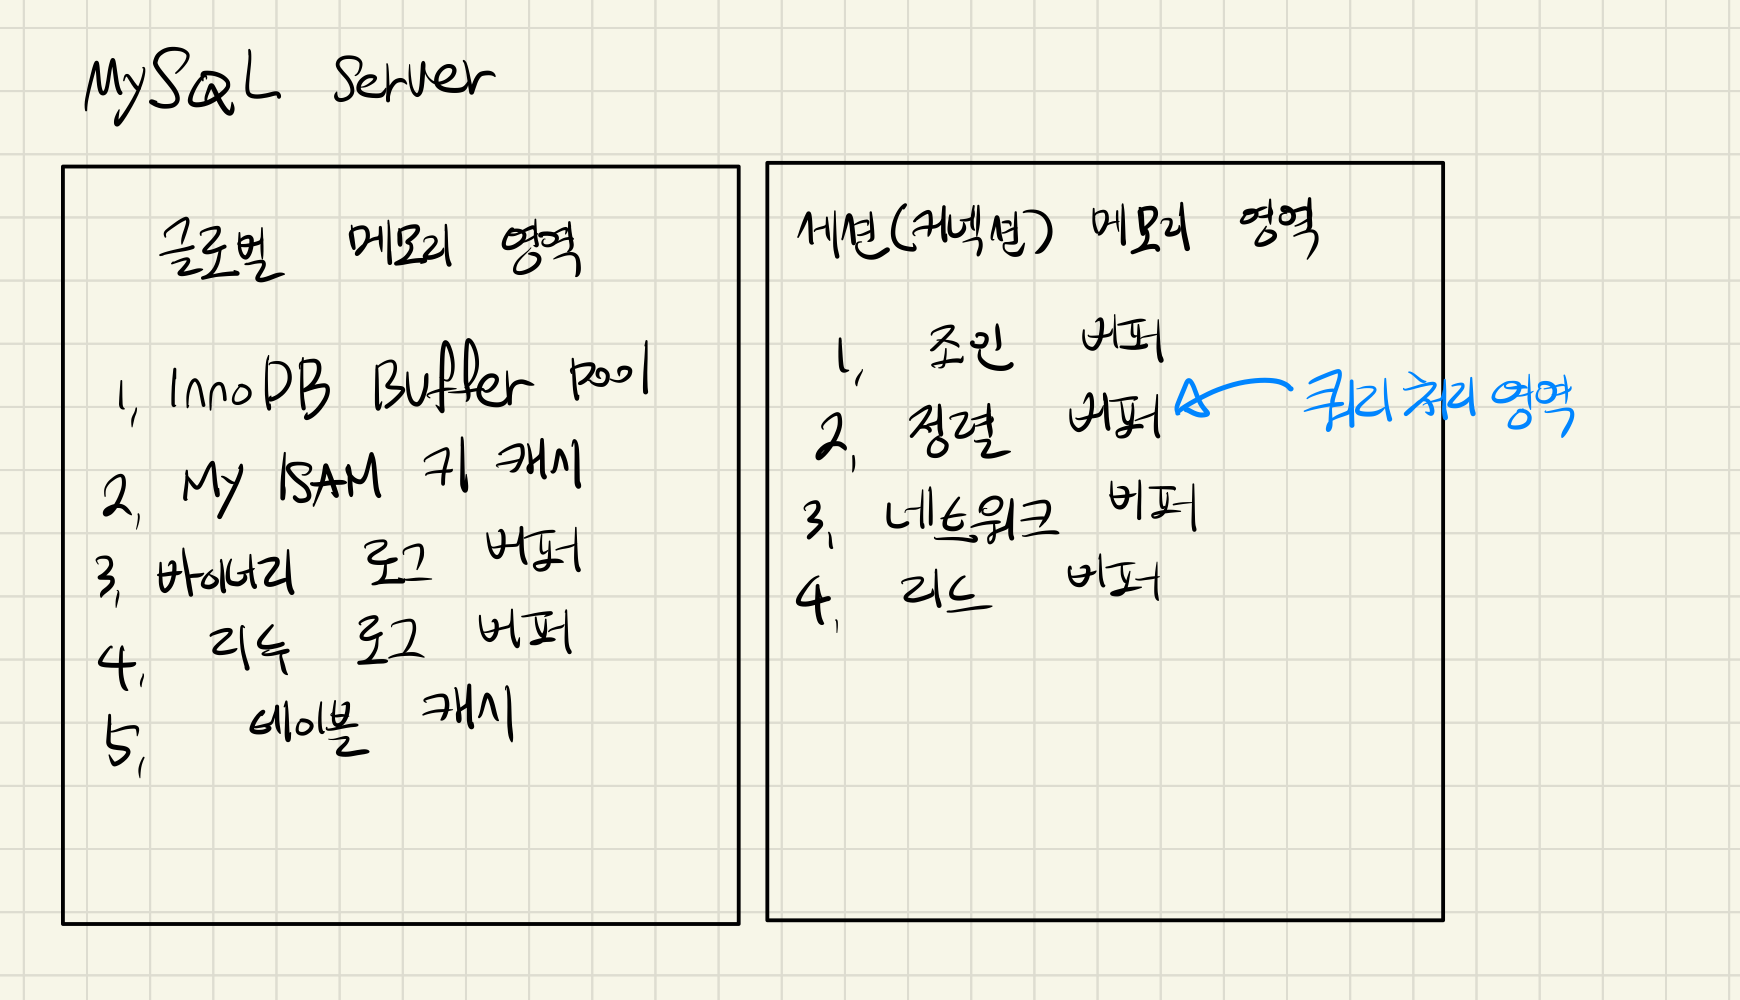 MySQL Server
글로벌 메모리 영역
1, InnoDB Buffer pool
2, My ISAM 키 캐시
3, 바이너리 로그 버퍼
4, 리두 로그 버퍼
5, 테이블 캐시
세션(커넥션) 메모리 영역
1, 조인 버퍼
2, 정렬 버퍼
쿼리 처리 영역
3, 네트워크 버퍼
4, 리드 버퍼